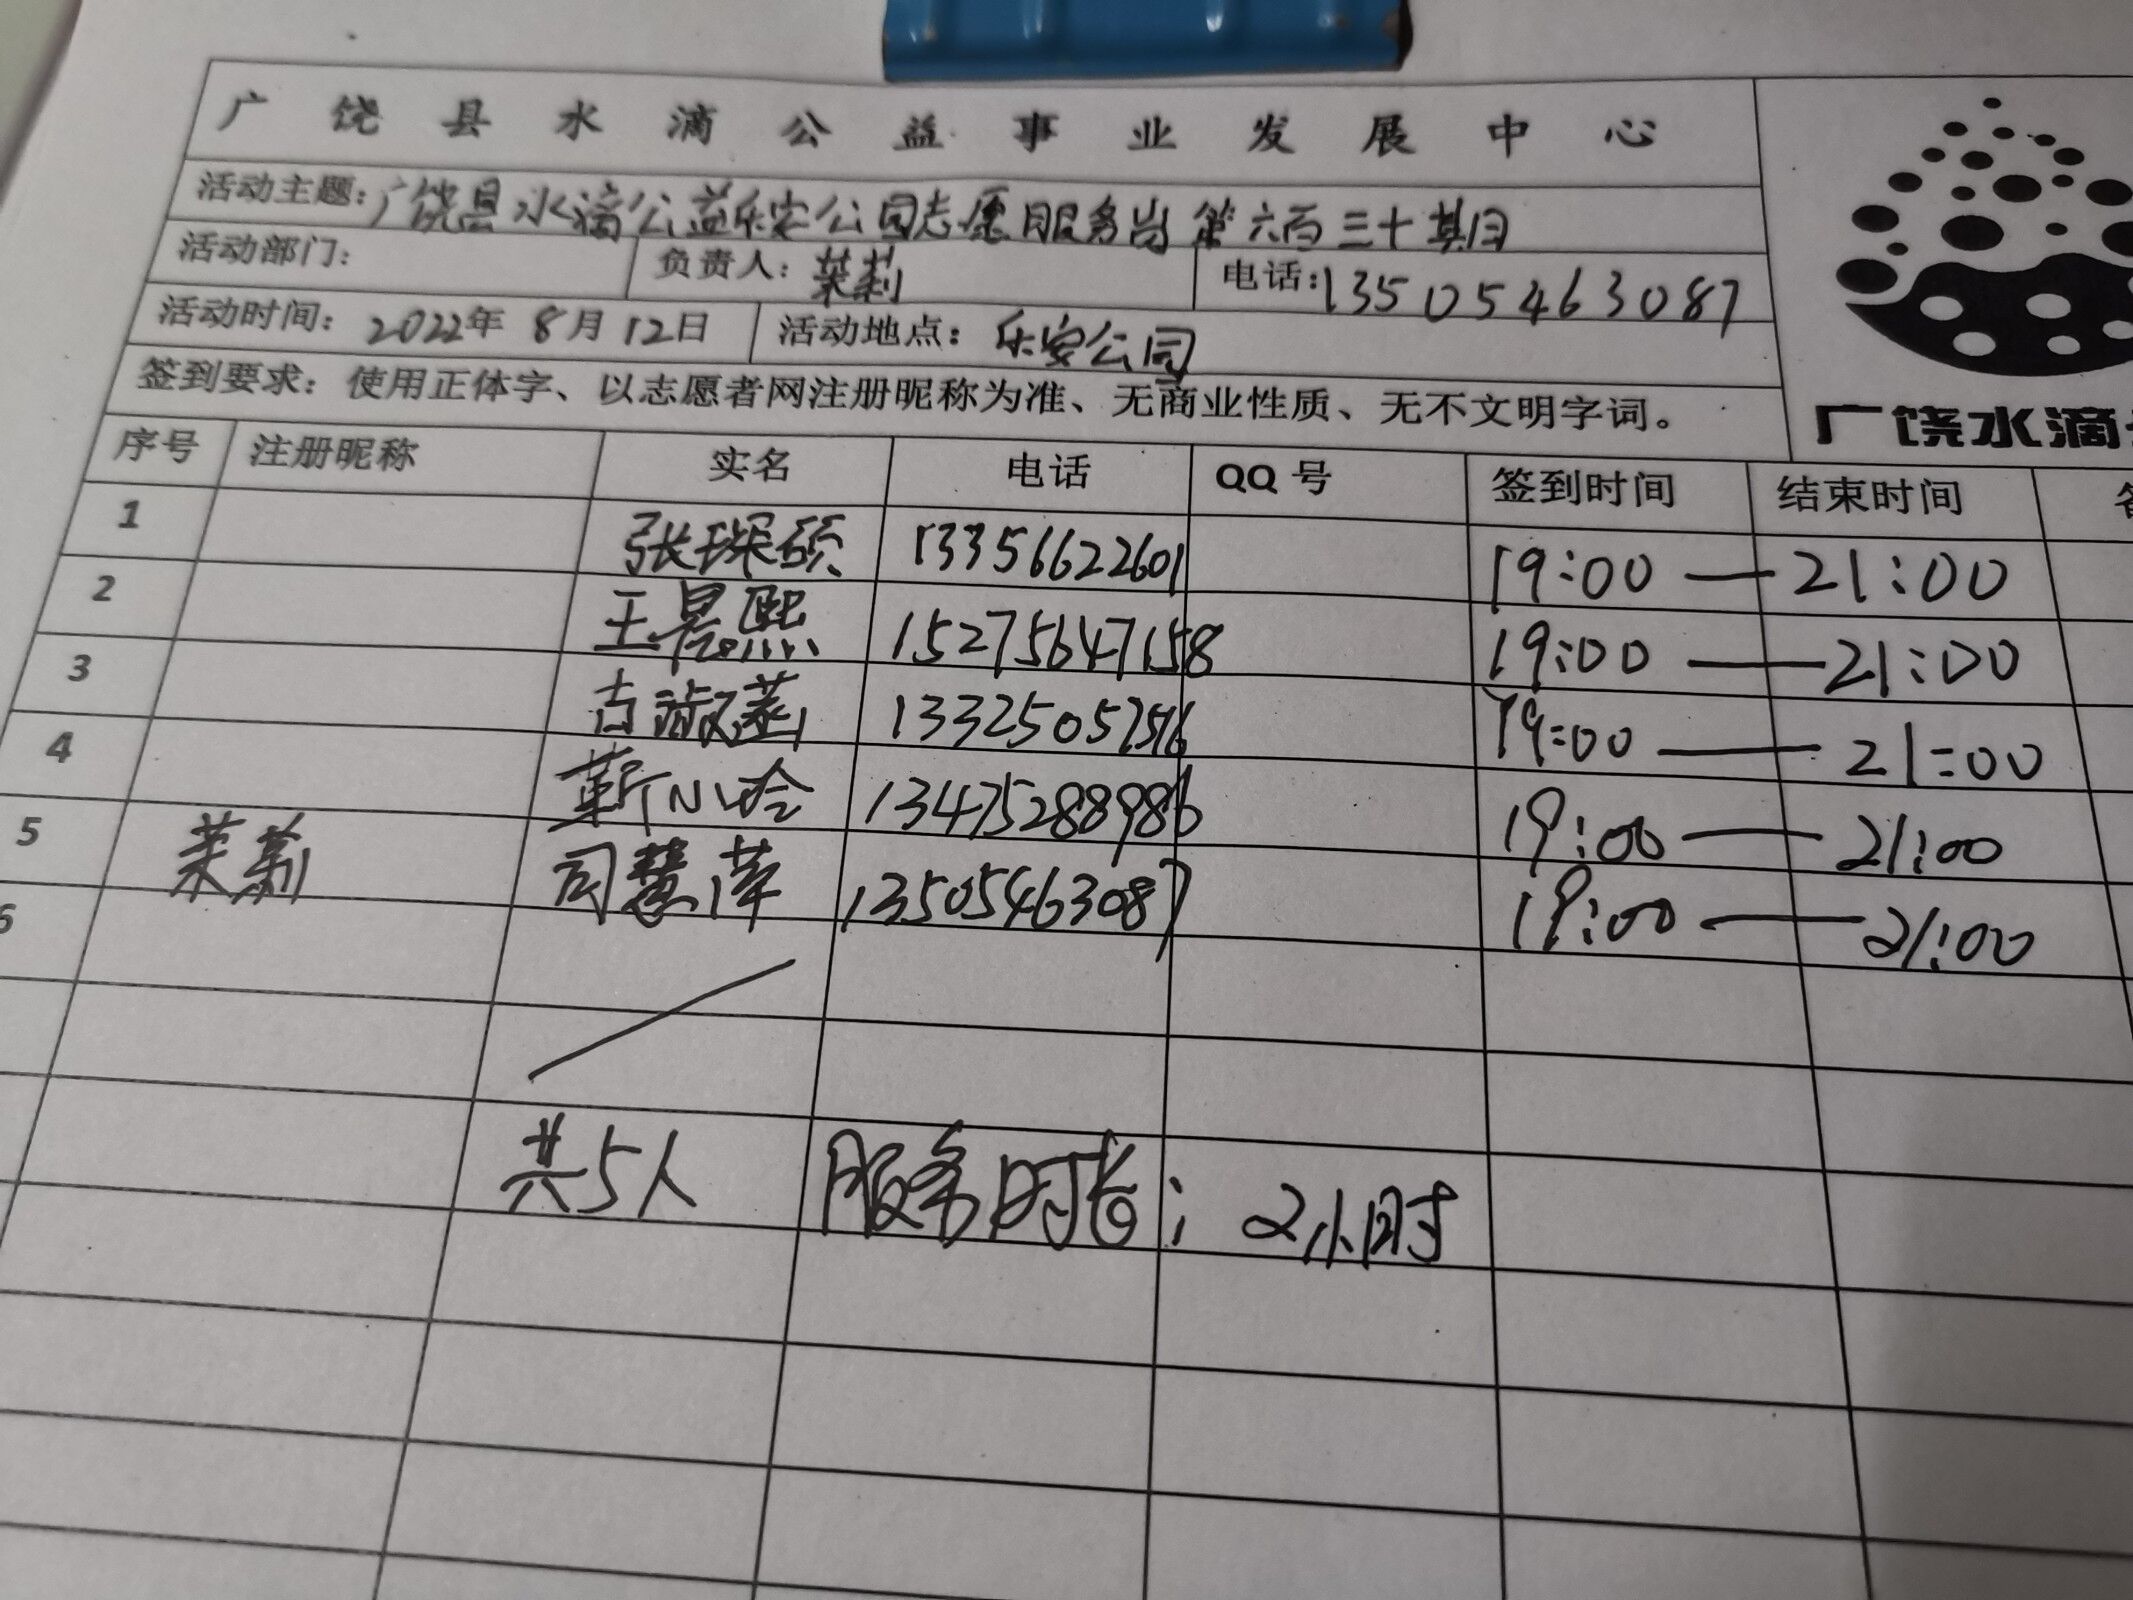 广饶县水滴公益事业发展中心
活动主题：广饶县水滴公益乐安公园志愿服务岗第六百三十期
活动部门： 负责人：茉莉 电话：13505463087
活动时间：2022年8月12日 活动地点：乐安公园
签到要求：使用正体字、以志愿者网注册昵称为准、无商业性质、无不文明字词。
广饶水滴
序号 注册昵称 实名 电话 QQ号 签到时间 结束时间
1 张琛硕 13356622601 19:00 — 21:00
2 王景熙 15275647158 19:00 — 21:00
3 古淑 19:00 — 21:00
4 靳小 13475288986 19:00 — 21:00
5 茉莉 司慧萍 13505463087 19:00 — 21:00
6
共5人 服务时长：2小时